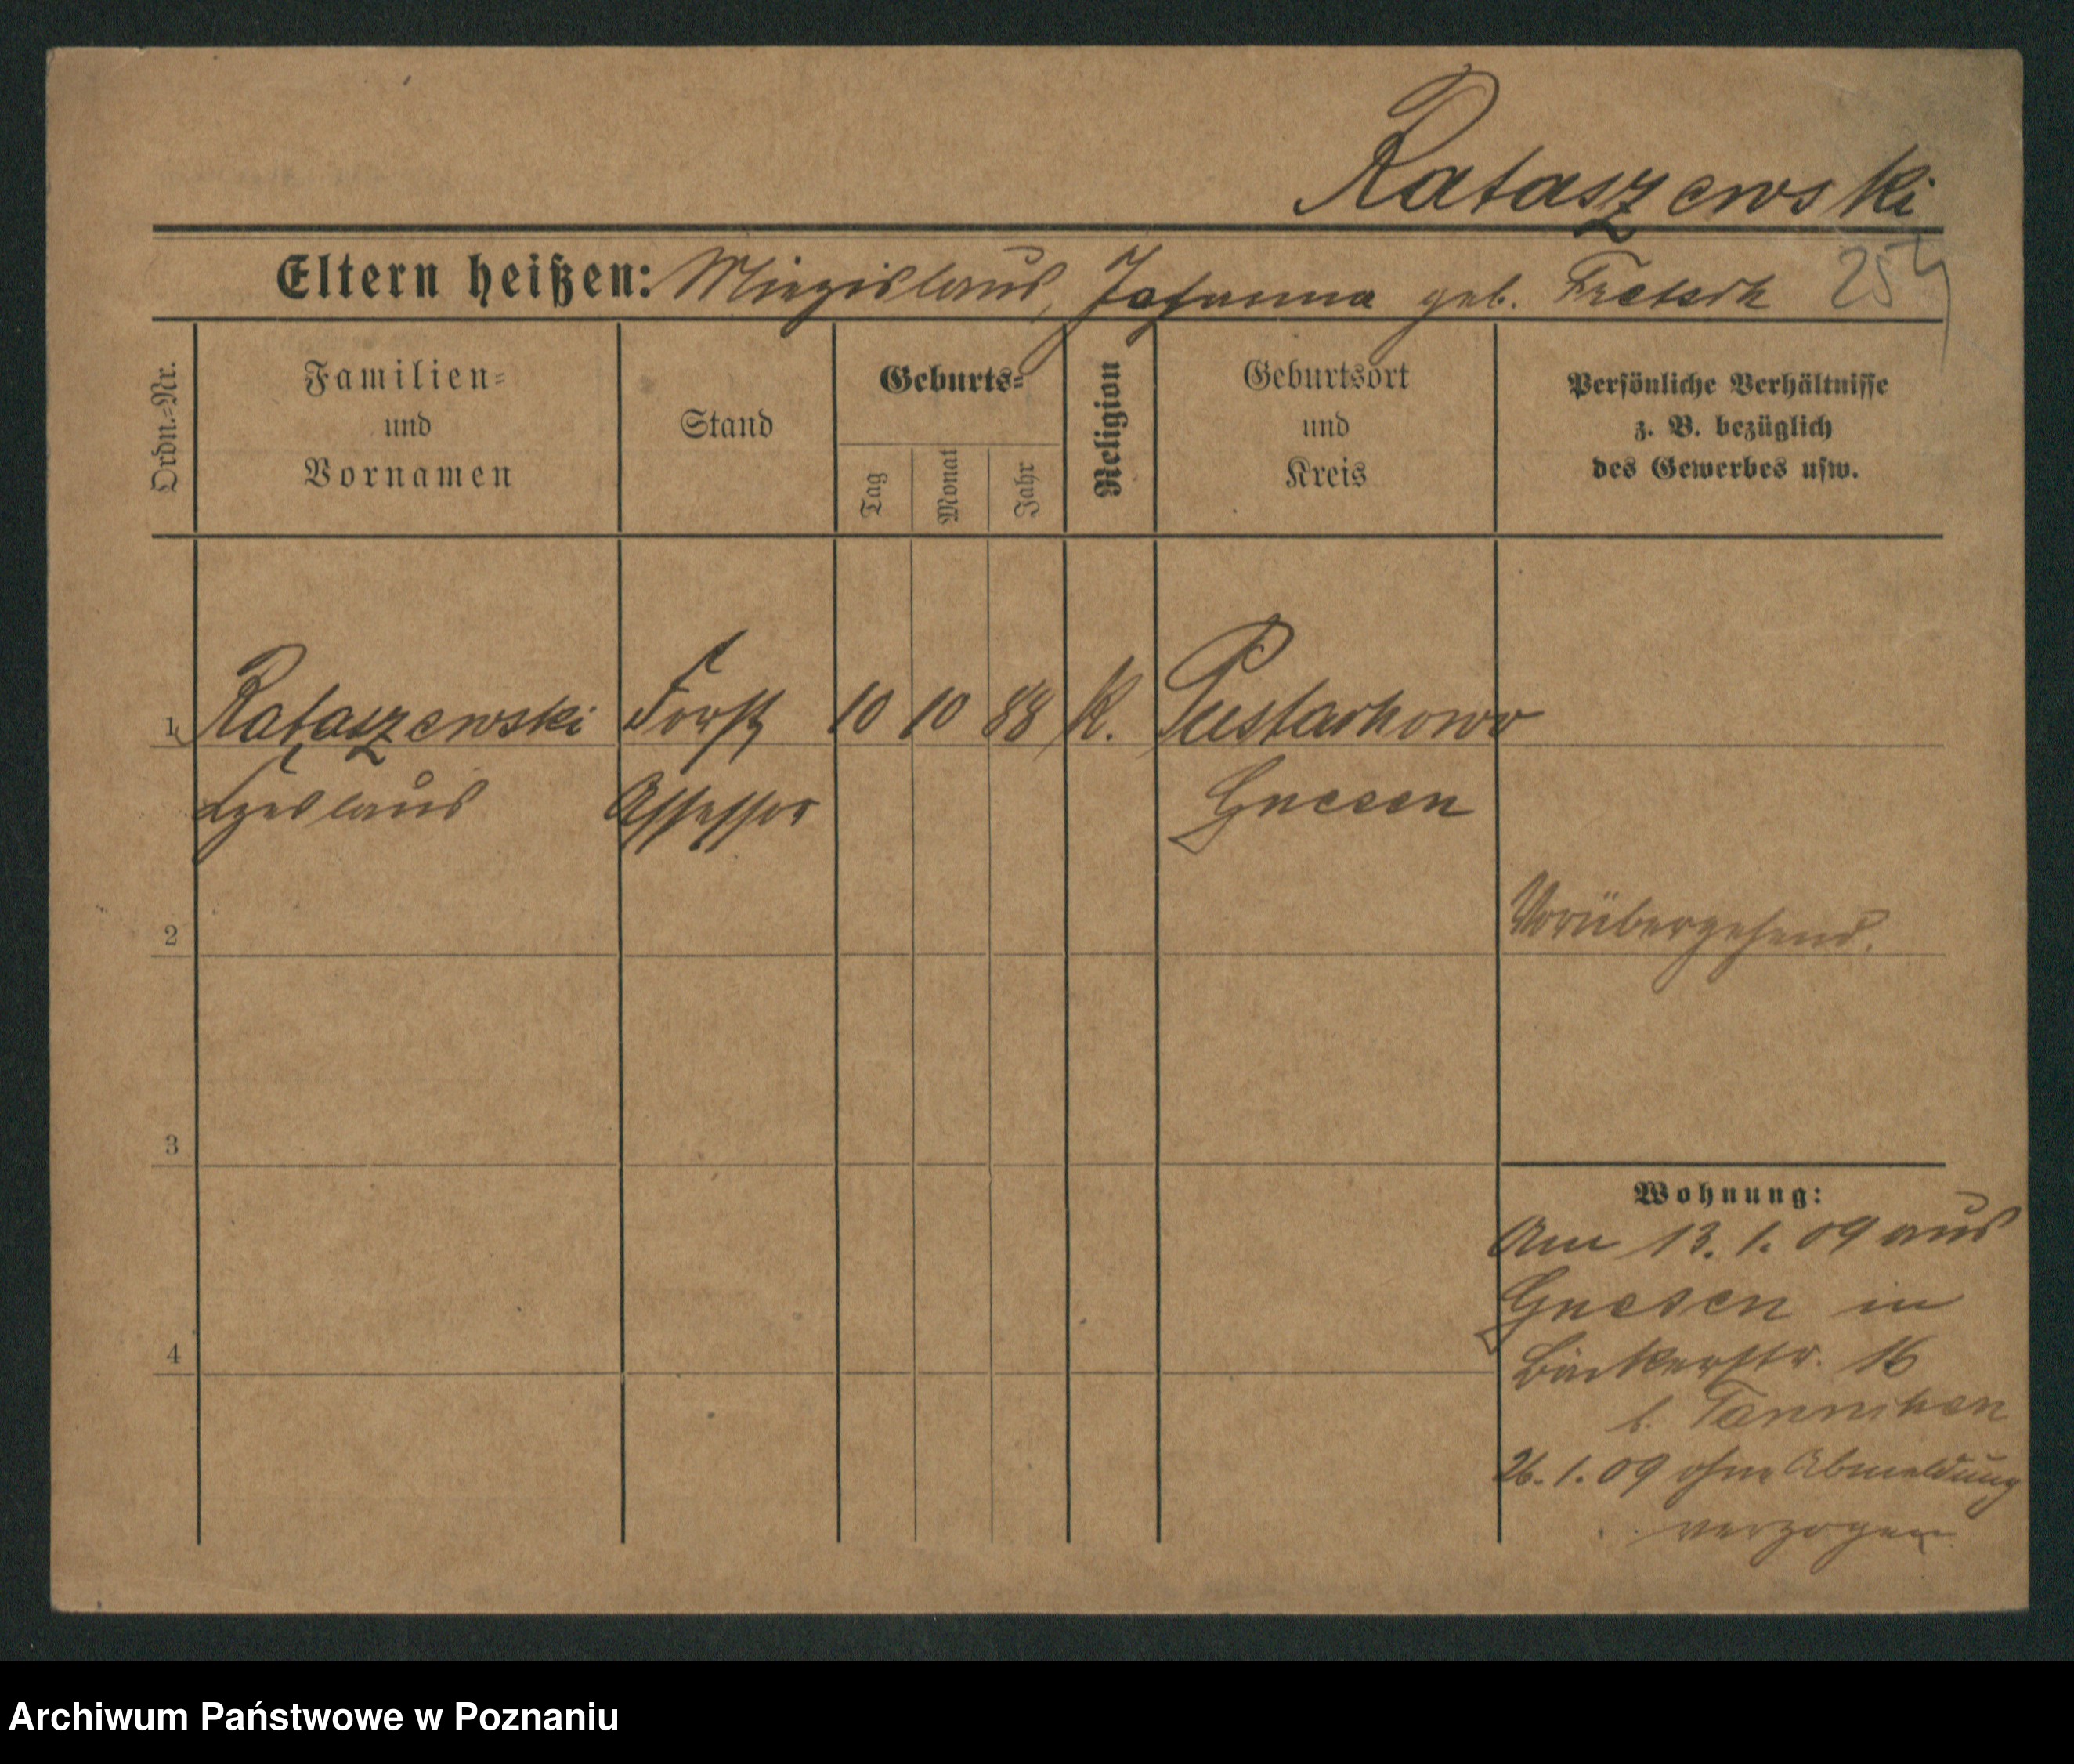 Rataszewski
Eltern heißen: Miezislaus, Johanna geb. 257
Ordn.-Nr.
Familien-
und
Vornamen
Stand
Geburts-
Tag
Monat
Jahr
Religion
Geburtsort
und
Kreis
Persönliche Verhältnisse
z. B. bezüglich
des Gewerbes usw.
1 Rataszewski Forst 10 10 88 K. Pustachowo
Czeslaus Assessor Gnesen
2 Vorübergehend.
3
Wohnung:
Am 13. 1. 09 aus
Gnesen in
4 Bäckerstr. 16
b.
26. 1. 09 ohne Abmeldung
verzogen
Archiwum Państwowe w Poznaniu